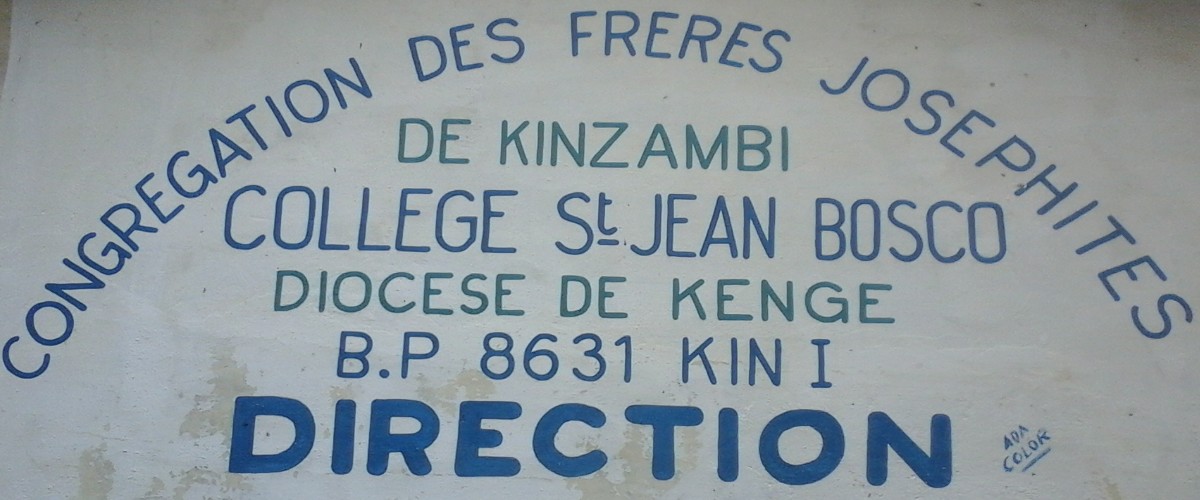 CONGREGATION DES FRERES JOSEPHITES
DE KINZAMBI
COLLEGE St JEAN BOSCO
DIOCESE DE KENGE
B.P 8631 KIN I
DIRECTION
ADA
COLOR